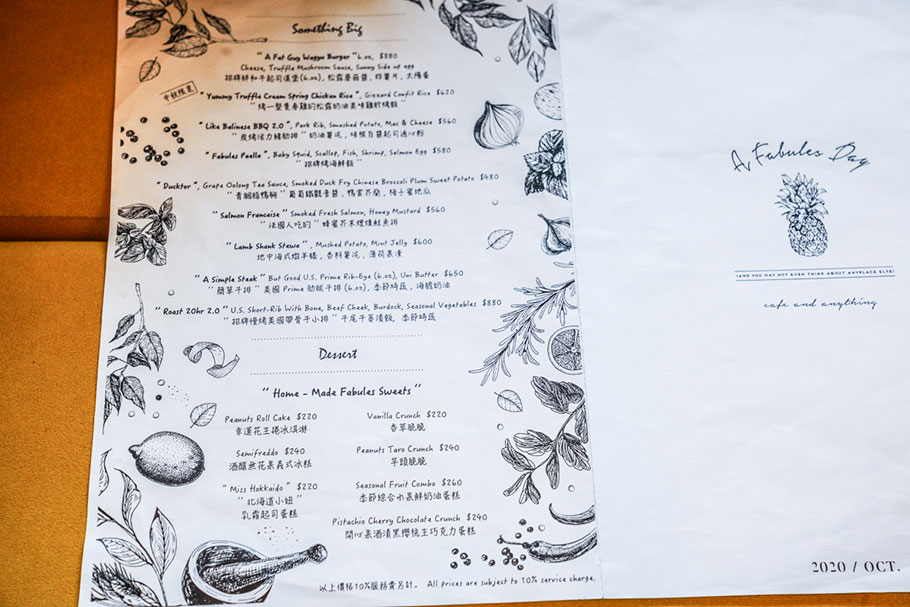 Something Big
" A Fat Guy Wagyu Burger " 6.oz, $380
Cheese, Truffle Mushroom Sauce, Sunny Side up egg
招牌胖和牛起司漢堡 (6.oz), 松露蘑菇醬, 炸薯片, 太陽蛋
中秋限定
" Yummy Truffle Cream Spring Chicken Rice ", Gizzard Confit Rice $620
" 烤一整隻春雞的松露奶油美味雞肫燉飯 "
" Like Balinese BBQ 2.0 ", Pork Rib, Smashed Potato, Mac & Cheese $560
" 炭烤活力豬肋排 " 奶油薯泥, 起司通心粉
" Fabules Paella ", Baby Squid, Scallop, Fish, Shrimp, Salmon Egg $580
" 招牌烤海鮮飯 "
" Ducktor ", Grape Oolong Tea Sauce, Smoked Duck Fry Chinese Broccoli Plum Sweet Potato $480
" 青胭脂鴨胸 " 葡萄鐵觀音醬, 鴨賞芥蘭, 梅子蜜地瓜
" Salmon Francaise " Smoked Fresh Salmon, Honey Mustard $560
" 法國人吃的 " 蜂蜜芥末煙燻鮭魚排
" Lamb Shank Stewa " , Mushed Potato, Mint Jelly $600
地中海式燉羊膝, 香料薯泥, 薄荷果凍
" A Simple Steak " But Good U.S. Prime Rib-Eye (6.oz), Uni Butter $650
" 簡單牛排 " 美國 Prime 肋眼牛排 (6.oz), 季節時蔬, 海膽奶油
" Roast 20hr 2.0 " U.S. Short-Rib With Bone, Beef Cheek, Burdock, Seasonal Vegetables $880
" 招牌慢烤美國帶骨牛小排 " 牛尾牛蒡漬飯, 季節時蔬
Dessert
" Home - Made Fabules Sweets "
Peanuts Roll Cake $220
幸運花生捲冰淇淋
Vanilla Crunch $220
香草脆脆
Semifreddo $240
酒釀無花果義式冰糕
Peanuts Taro Crunch $240
芋頭脆脆
" Miss Hokkaido " $220
" 北海道小妞 "
乳霜起司蛋糕
Seasonal Fruit Combo $260
季節綜合水果鮮奶油蛋糕
Pistachio Cherry Chocolate Crunch $240
開心果酒漬黑櫻桃生巧克力蛋糕
以上價格10%服務費另計。 All prices are subject to 10% service charge.
A Fabules Day
(AND YOU MAY NOT EVEN THINK ABOUT ANYPLACE ELSE)
cafe and anything
2020 / OCT.